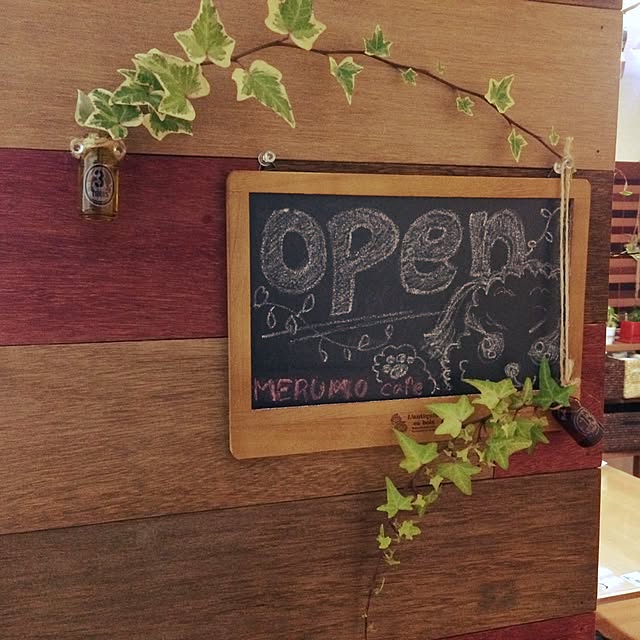 3
open
MERUMO cafe
L'antiquaire
en bois